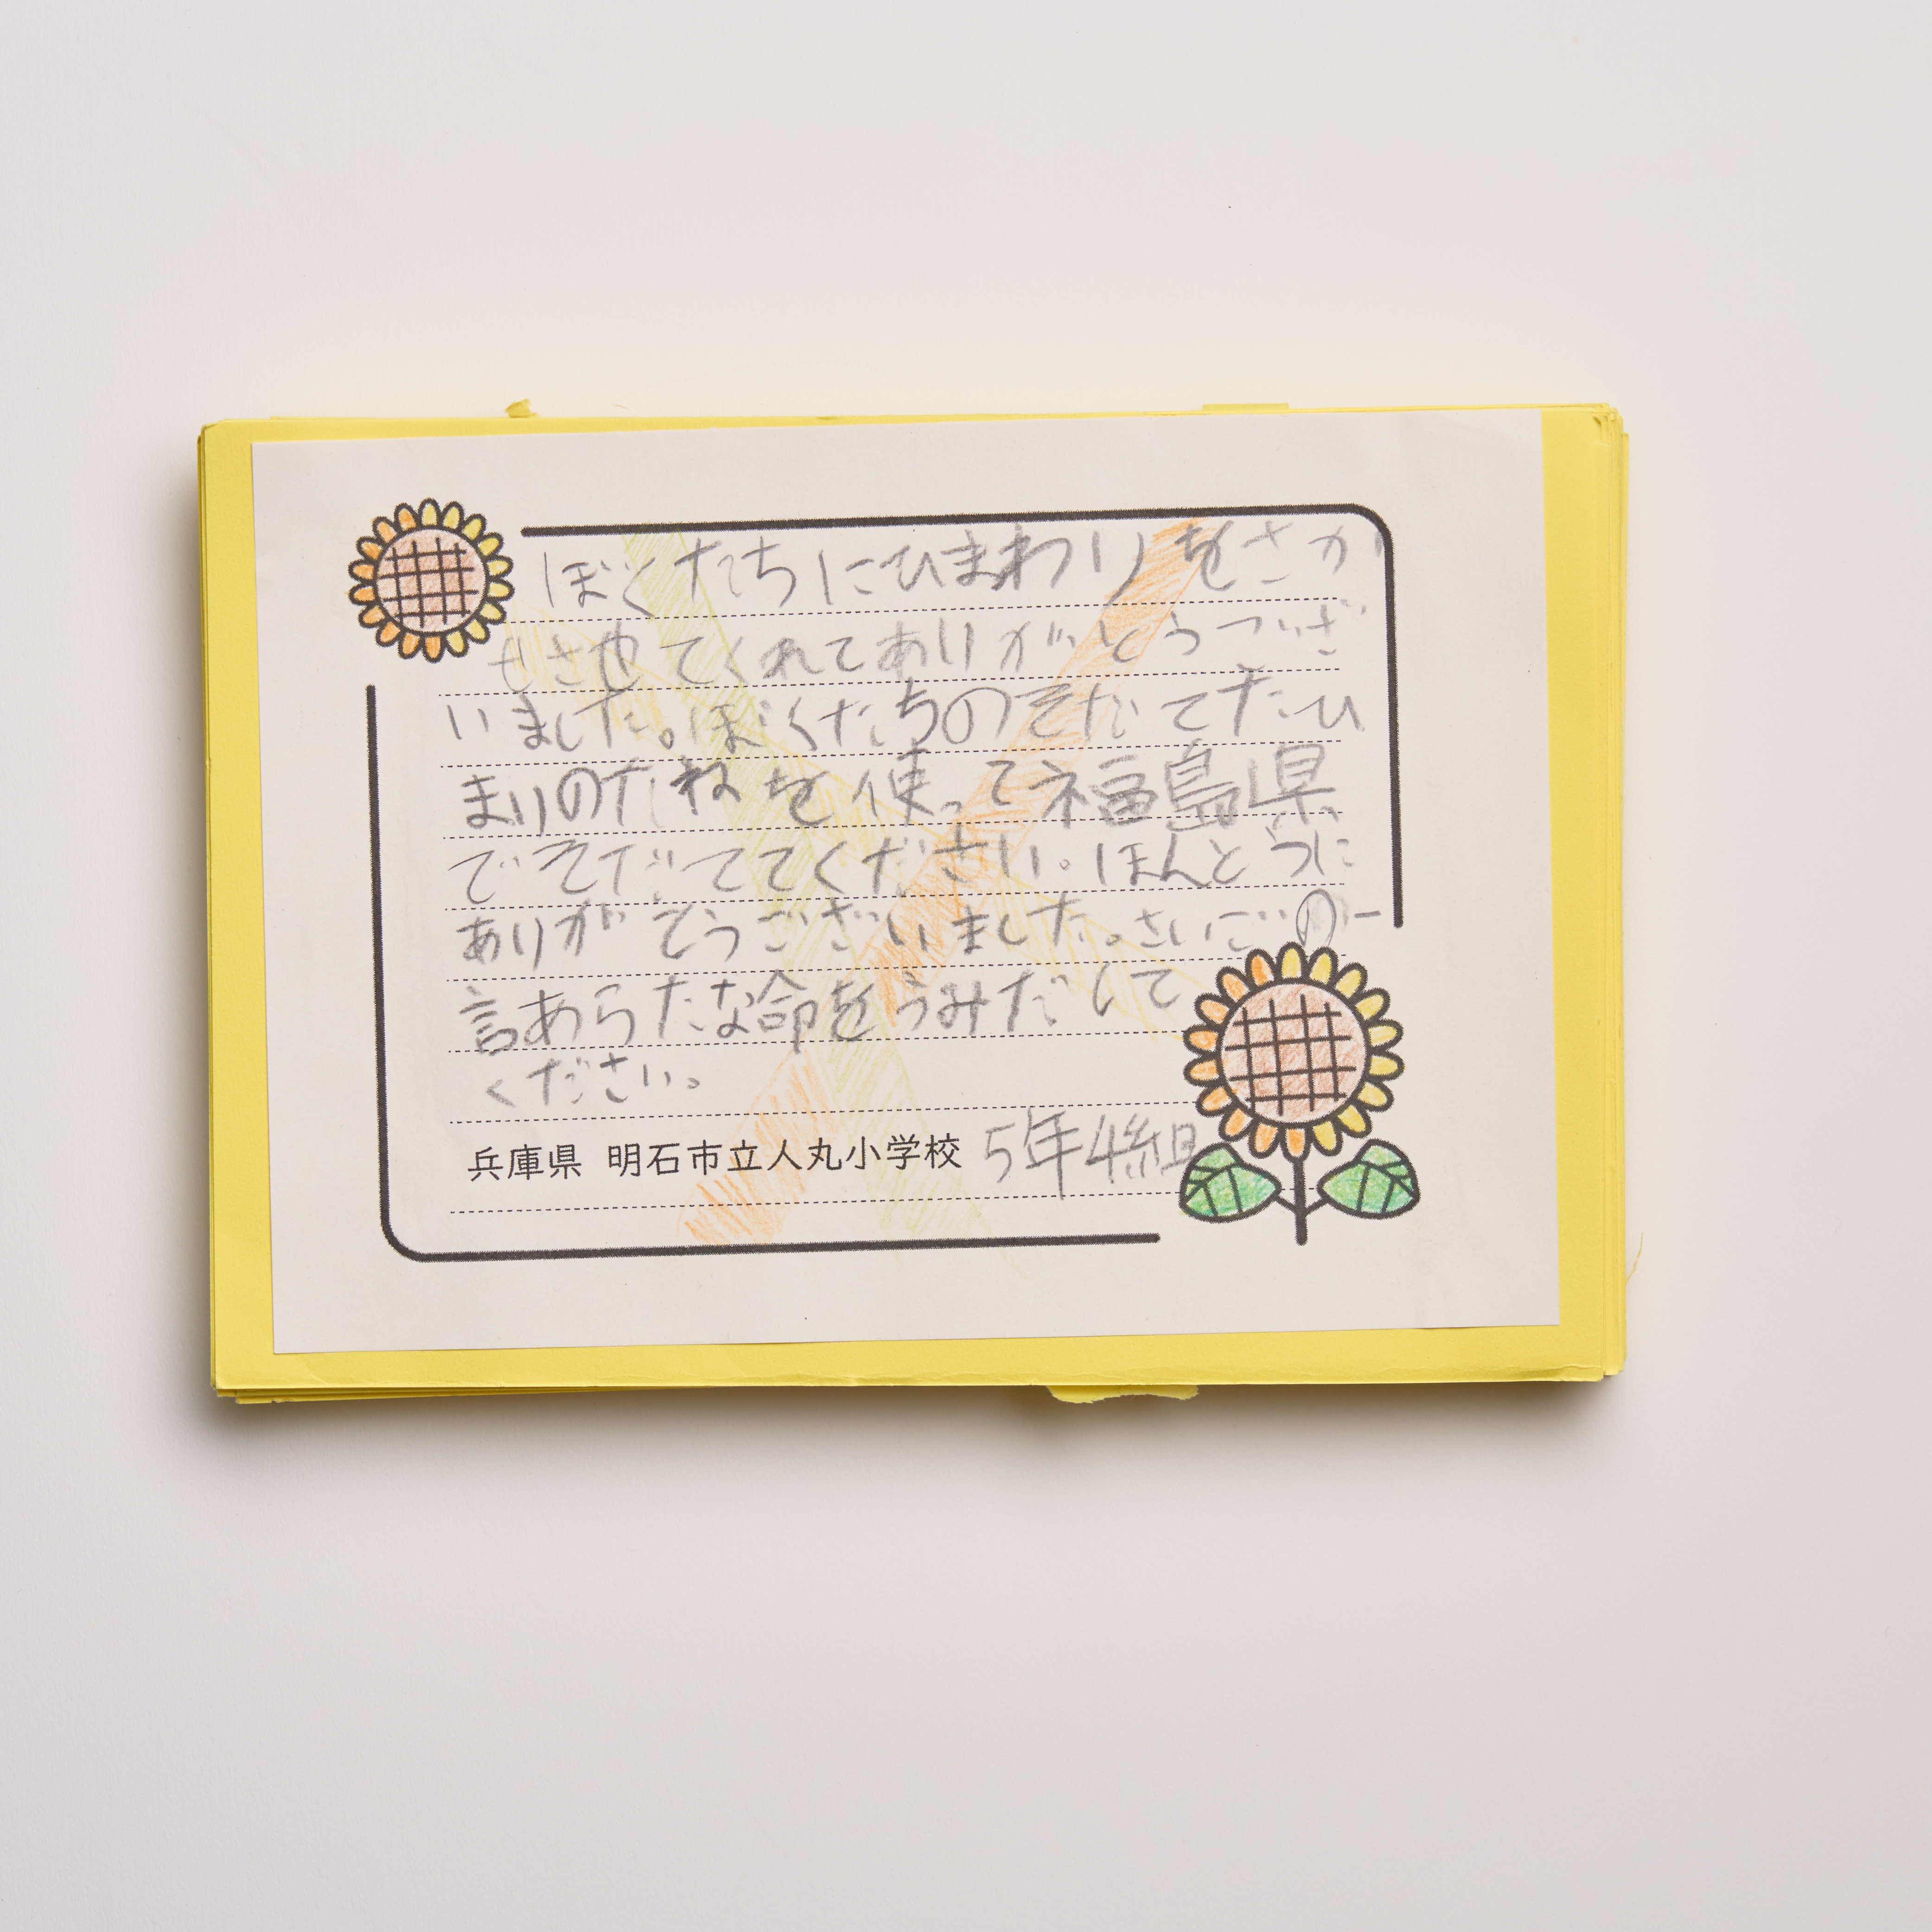 ぼくたちにひまわりをさか
せさせてくれてありがとうござ
いました。ぼくたちのそだてたひ
まりのたねを使って福島県
でそだててください。ほんとうに
ありがとうございました。さいごの一
言あらたな命をうみだして
ください。
兵庫県 明石市立人丸小学校 5年4組